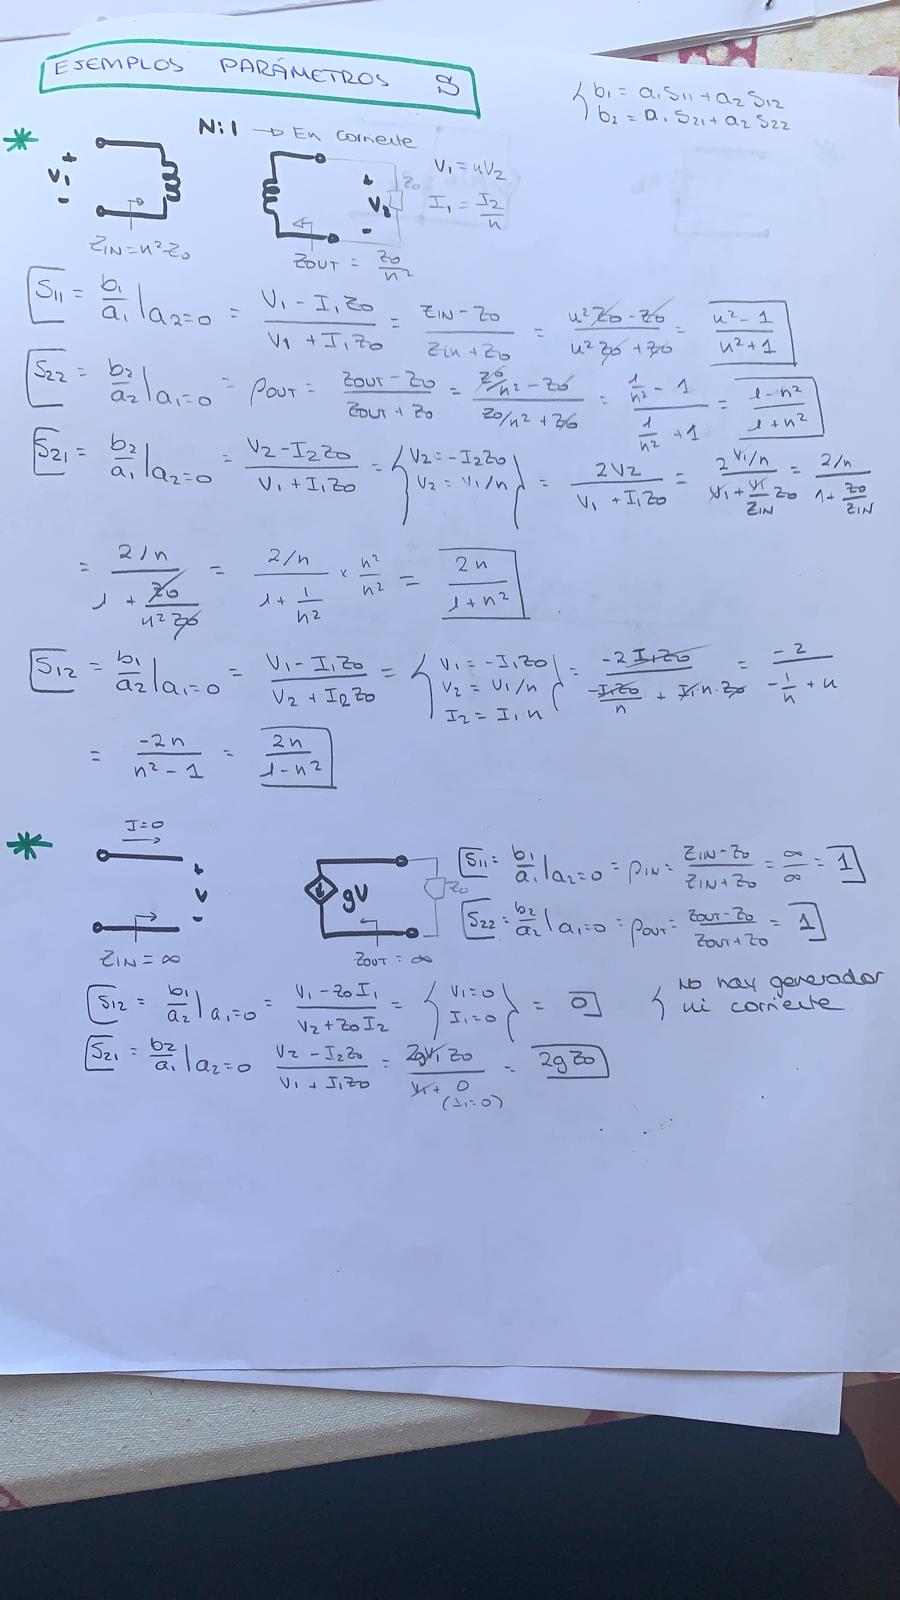 EJEMPLOS PARÁMETROS S
b1 = a1 S11 + a2 S12
b2 = a1 S21 + a2 S22
N:1 → En corriente
+ V1 -
+ V2 -
Z0
V1 = nV2
I1 = I2/n
ZIN = n²·Z0
ZOUT = Z0/n²
S11 = b1/a1 |a2=0 = (V1 - I1Z0)/(V1 + I1Z0) = (ZIN - Z0)/(Zin + Z0) = (n²Z0 - Z0)/(n²Z0 + Z0) = (n² - 1)/(n² + 1)
S22 = b2/a2 |a1=0 = ρOUT = (ZOUT - Z0)/(ZOUT + Z0) = (Z0/n² - Z0)/(Z0/n² + Z0) = (1/n² - 1)/(1/n² + 1) = (1 - n²)/(1 + n²)
S21 = b2/a1 |a2=0 = (V2 - I2Z0)/(V1 + I1Z0) = { V2 = -I2Z0 V2 = V1/n } = 2V2/(V1 + I1Z0) = (2 V1/n)/(V1 + V1/ZIN Z0) = (2/n)/(1 + Z0/ZIN)
= (2/n)/(1 + Z0/(n²Z0)) = (2/n)/(1 + 1/n²) × n²/n² = 2n/(1 + n²)
S12 = b1/a2 |a1=0 = (V1 - I1Z0)/(V2 + I2Z0) = { V1 = -I1Z0 V2 = V1/n I2 = I1·n } = (-2 I1Z0)/(-I1Z0/n + I1·n·Z0) = -2/(-1/n + n)
= -2n/(n² - 1) = 2n/(1 - n²)
I=0
+ V -
gV
Z0
ZIN = ∞
ZOUT = ∞
S11 = b1/a1 |a2=0 = ρIN = (ZIN - Z0)/(ZIN + Z0) = ∞/∞ = 1
S22 = b2/a2 |a1=0 = ρOUT = (ZOUT - Z0)/(ZOUT + Z0) = 1
S12 = b1/a2 |a1=0 = (V1 - Z0I1)/(V2 + Z0I2) = { V1 = 0 I1 = 0 } = 0 { No hay generador ni corriente
S21 = b2/a1 |a2=0 (V2 - I2Z0)/(V1 + I1Z0) = 2gV1Z0/(V1 + 0) = 2gZ0
(I1=0)